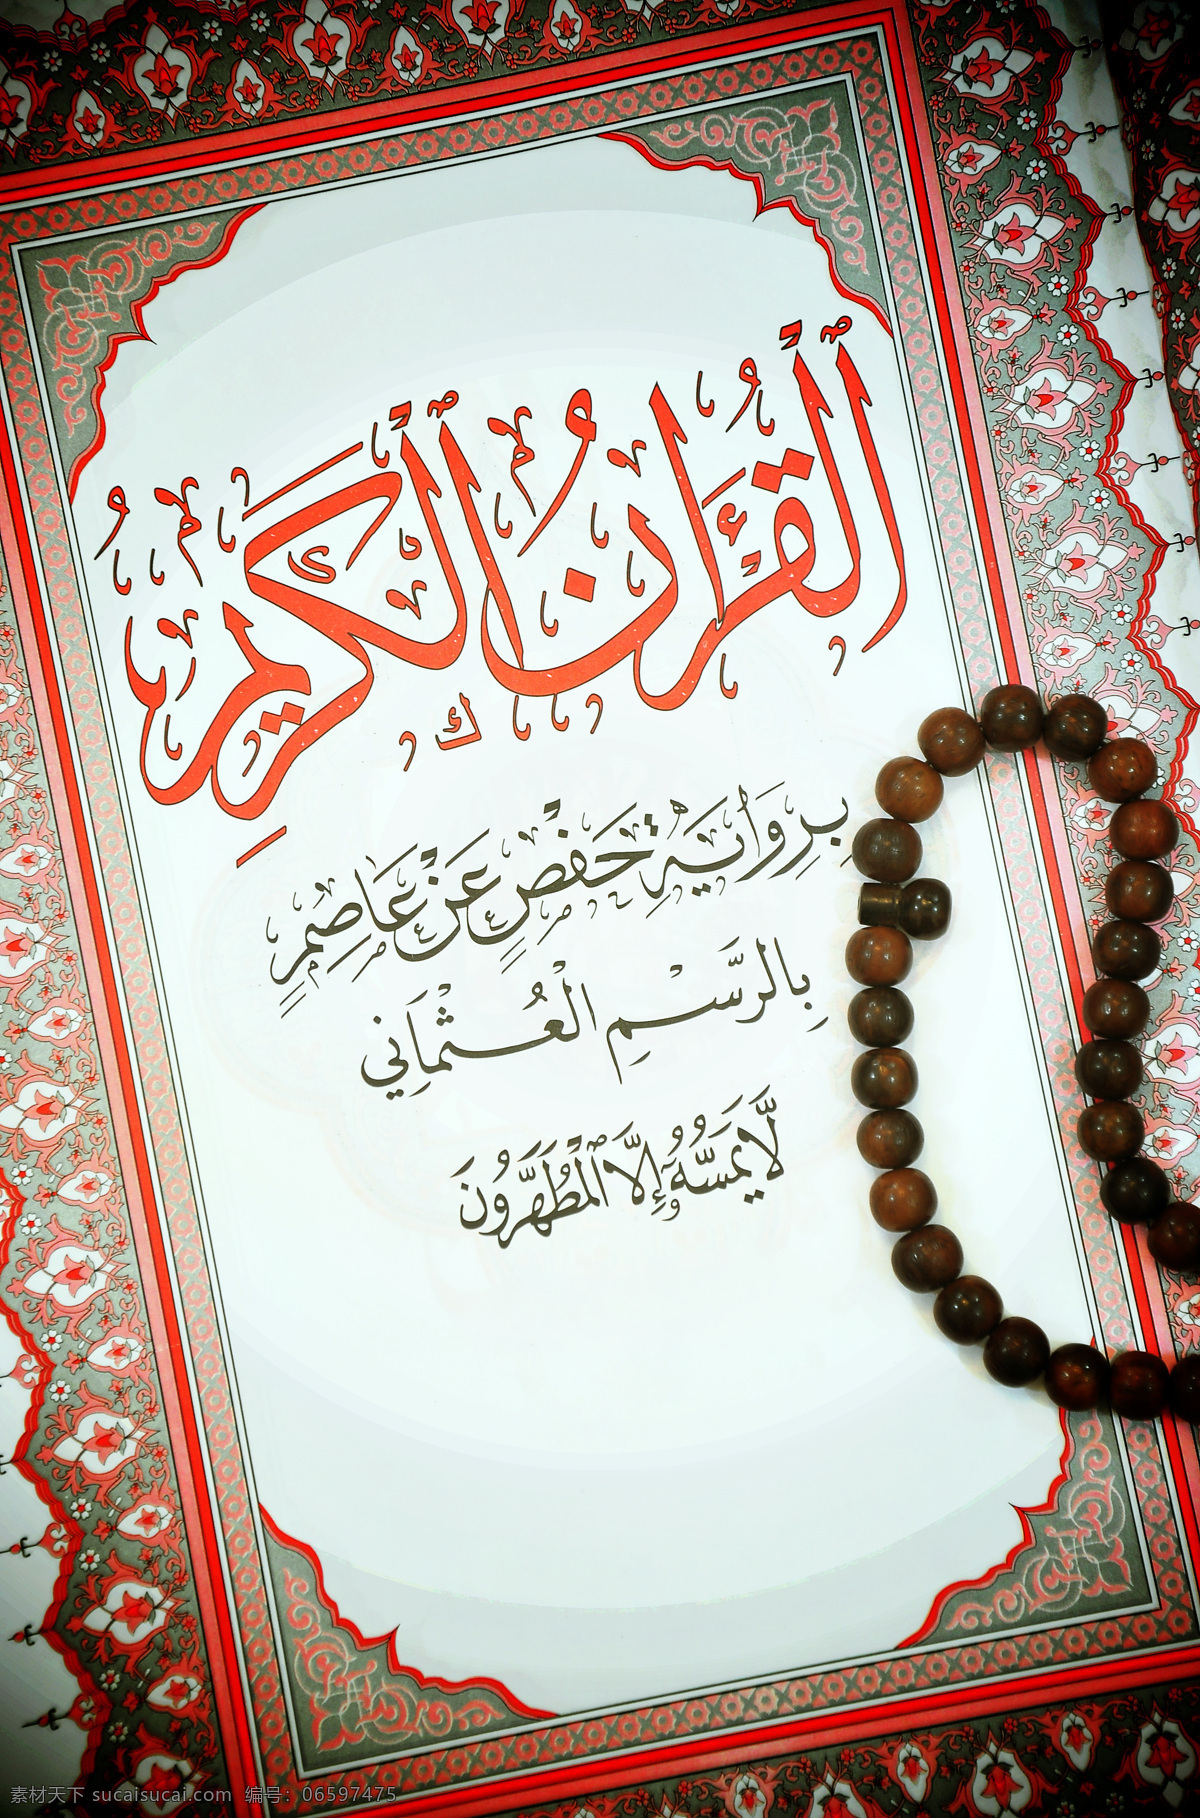 ٱلْقُرْءَانُ ٱلْكَرِيمُ
بِرِوَايَةِ حَفْصٍ عَنْ عَاصِمٍ
بِالرَّسْمِ الْعُثْمَانِي
لَّا يَمَسُّهُۥٓ إِلَّا ٱلْمُطَهَّرُونَ
素材天下 sucaisucai.com 编号：06597475